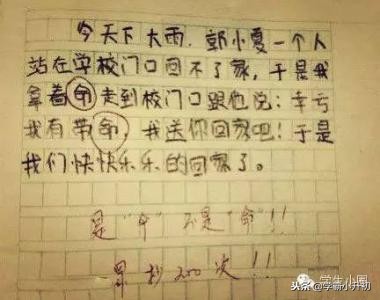 今天下大雨，郭小夏一个人
站在学校门口回不了家，于是我
拿着命走到校门口跟他说：幸亏
我有带命，我送你回家吧！于是
我们快快乐乐的回家了。
是“伞”不是“命”！！
罚抄200次！！
学生小圈
头条@学霸小升初